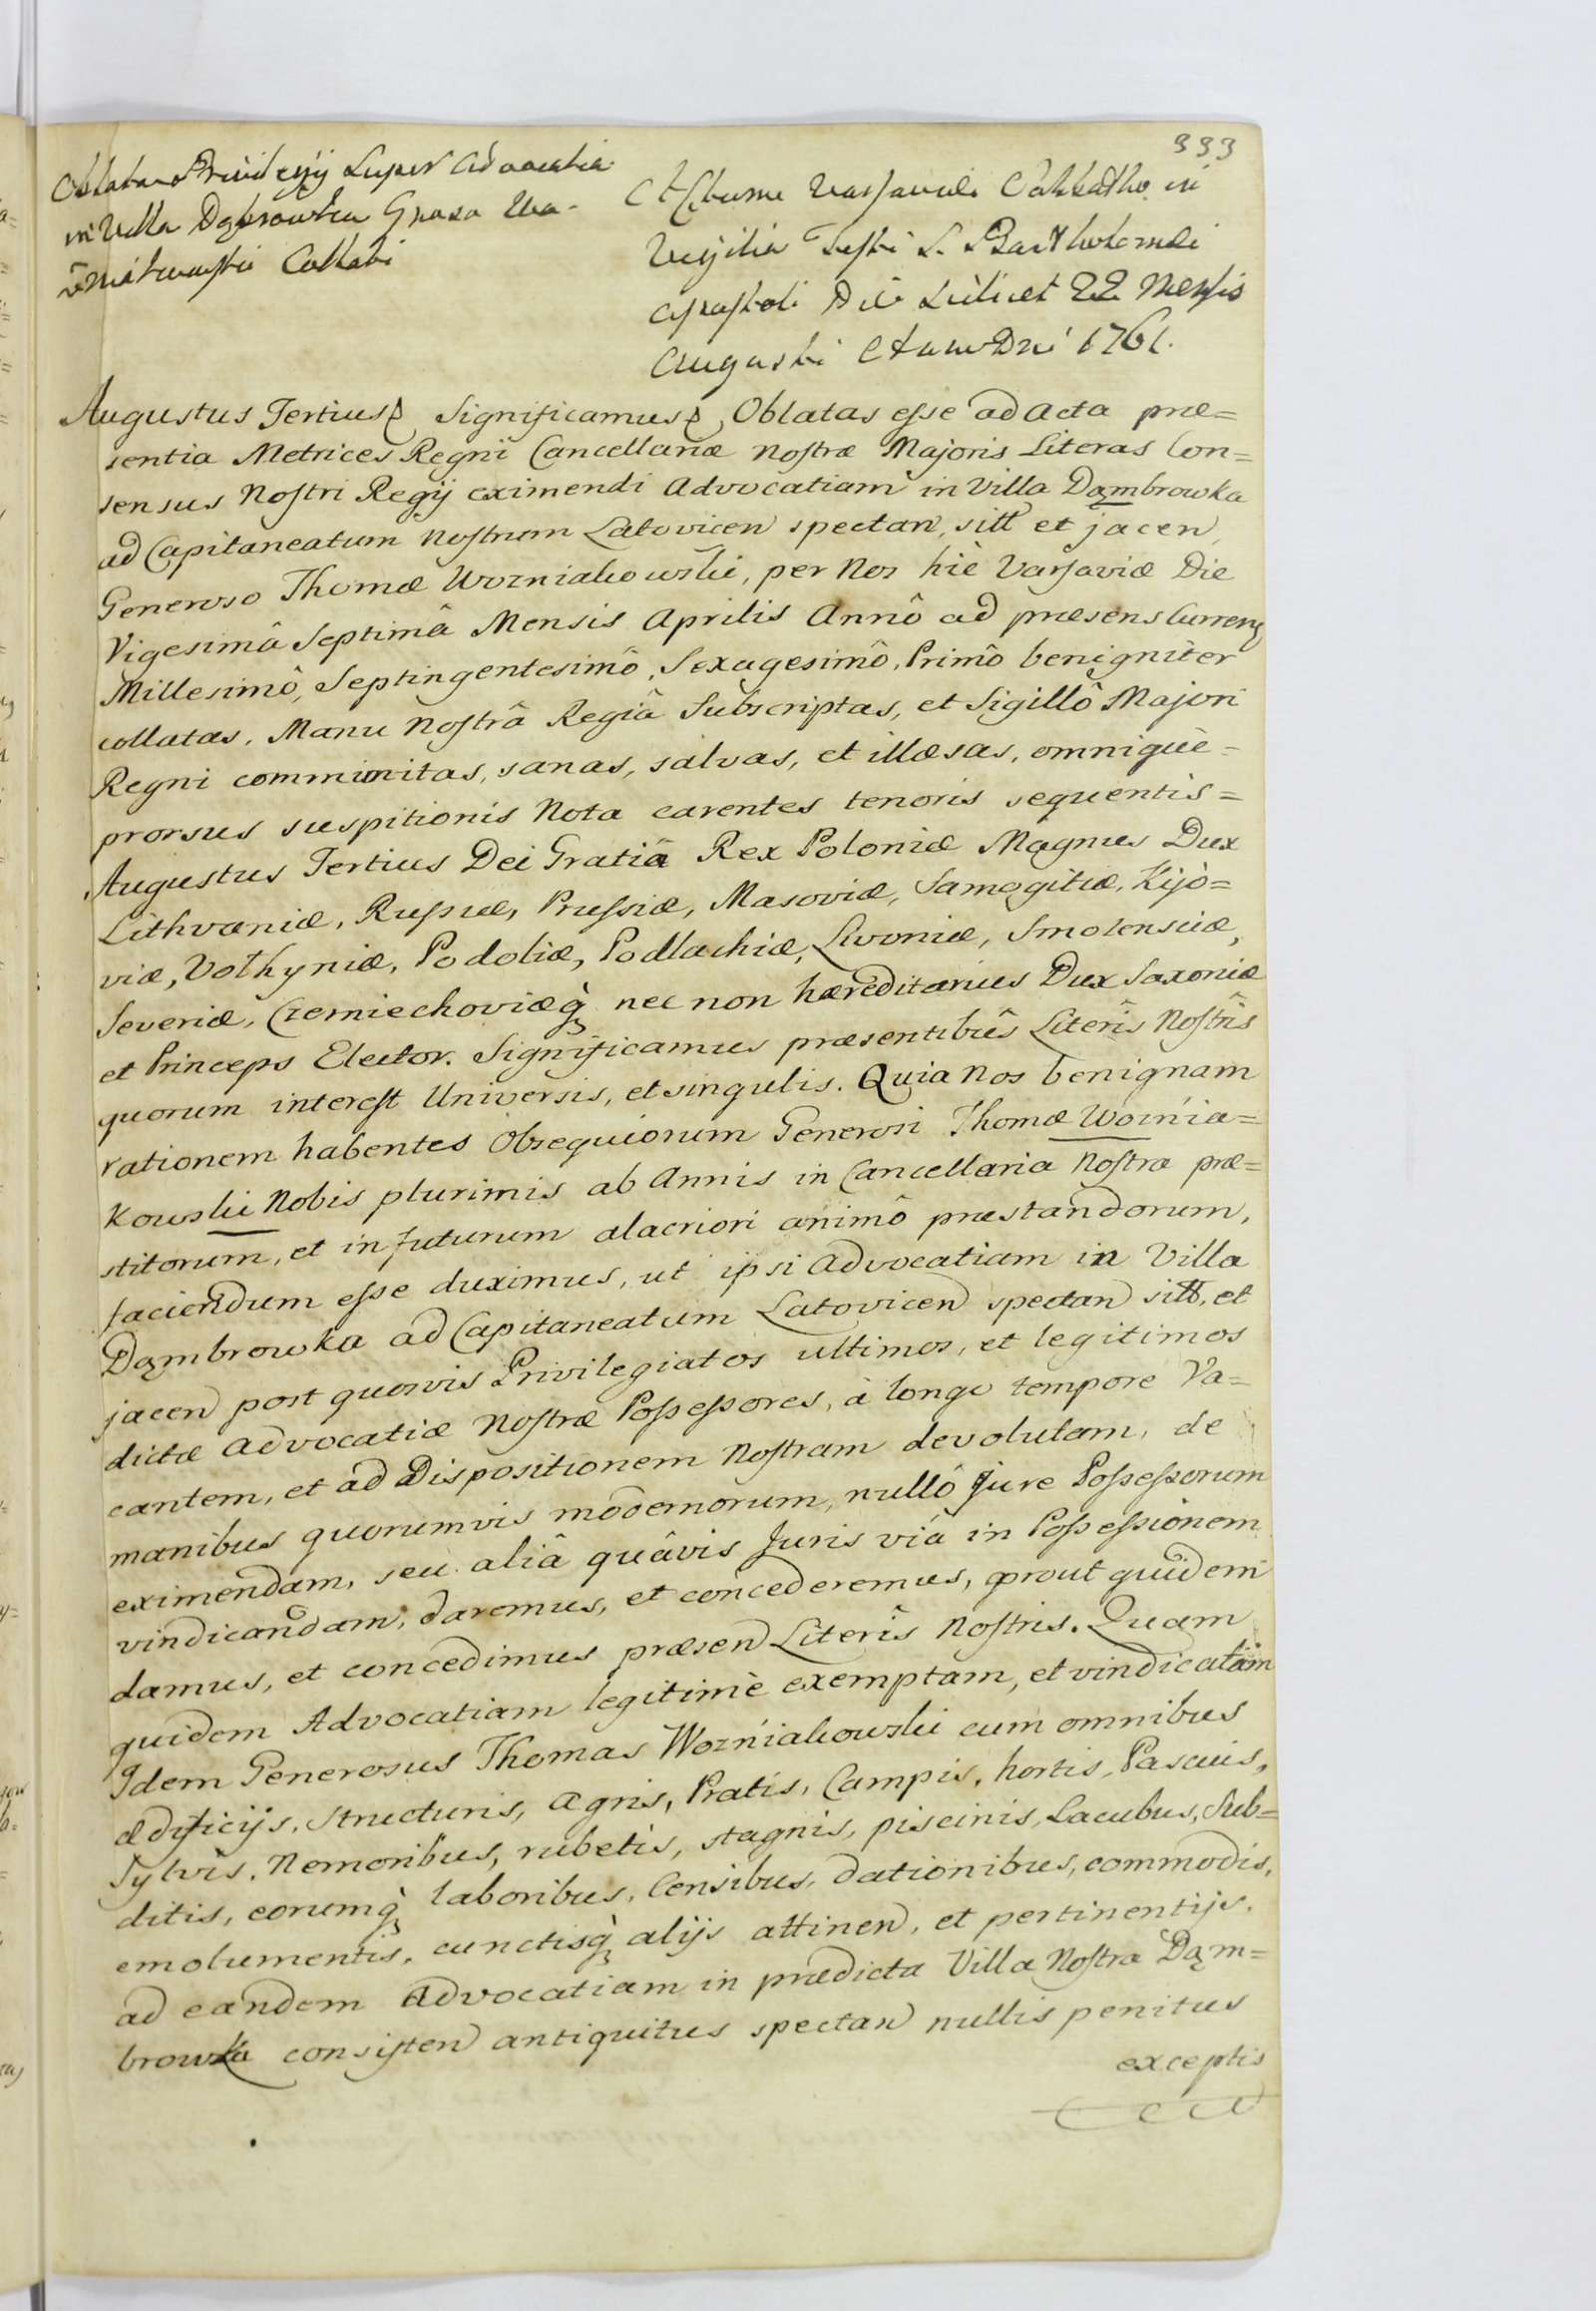 333
Oblata Privilegij Super Advocatia
in Villa Dąbrowka Gnoso Wo-
źniakowski Collati
Actum Varsaviæ Sabbatho in
Vigilia Festi S. Bartholomæi
Apostoli Die Scilicet 22 Mensis
Augusti Anno Dni 1761.
Augustus Tertius Significamus Oblatas esse ad Acta præ=
sentia Metrices Regni Cancellariæ Nostræ Majoris Literas Con=
sensus Nostri Regij eximendi Advocatiam in Villa Dąmbrowka
ad Capitaneatum Nostrum Latovicen spectan, sitt et jacen,
Generoso Thomæ Wozniakowski, per Nos hîc Varsaviæ Die
Vigesimâ Septimâ Mensis Aprilis Annô ad præsens Curren
Millesimô, Septingentesimô, Sexagesimô, Primô benigniter
collatas, Manu Nostrâ Regiâ Subscriptas, et Sigillô Majori
Regni communitas, sanas, salvas, et illæsas, omnique=
prorsus suspitionis Nota carentes tenoris sequentis=
Augustus Tertius Dei Gratiâ Rex Poloniæ Magnus Dux
Lithvaniæ, Russiæ, Prussiæ, Masoviæ, Samogitiæ, Kijo=
viæ, Volhyniæ, Podoliæ, Podlachiæ, Livoniæ, Smolensciæ,
Severiæ, Czerniechoviæq́ nec non hæreditarius Dux Saxoniæ
et Princeps Elector. Significamus præsentibûs Literîs Nostrîs
quorum interest Universis, et singulis. Quia Nos benignam
rationem habentes Obsequiorum Generosi Thomæ Woźnia=
kowski Nobis plurimis ab Annis in Cancellaria Nostra præ=
stitorum, et in futurum alacriori animô præstandorum,
faciendum esse duximus, ut ipsi Advocatiam in Villa
Dąmbrowka ad Capitaneatum Latovicen spectan sitt, et
jacen post quosvis Privilegiatos ultimos, et legitimos
dictæ Advocatiæ Nostræ Possessores, à longo tempore Va=
cantem, et ad Dispositionem Nostram devolutam, de
manibus quorumvis modernorum, nullô Jure Possessorum
eximendam, seu aliâ quâvis Juris viâ in Possessionem
vindicandam, daremus, et concederemus, prout quidem
damus, et concedimus præsen Literîs Nostris. Quam
quidem Advocatiam legitimè exemptam, et vindicatam
Idem Generosus Thomas Woźniakowski cum omnibus
ædificijs, Structuris, Agris, Pratis, Campis, hortis, Pascuis,
Sylvis, Nemoribus, rubetis, stagnis, piscinis, Lacubus, Sub=
ditis, eorumq́ laboribus, Censibus, dationibus, commodis,
emolumentis, cunctisq́ alijs attinen, et pertinentijs,
ad eandem Advocatiam in prædicta Villa Nostra Dąm=
browka consisten antiquitus spectan nullis penitus
exceptis